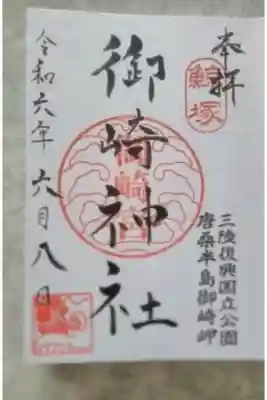 奉拝
鯨塚
三陸復興国立公園
唐桑半島御崎岬
御崎神社
令和六年六月八日